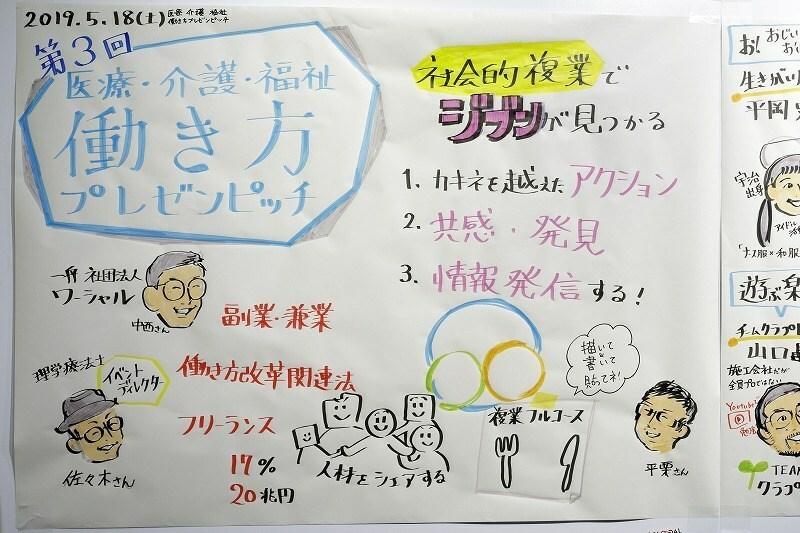 2019.5.18(土)
医療 介護 福祉
働き方プレゼンピッチ
第3回
医療・介護・福祉
働き方
プレゼンピッチ
社会的複業で
ジブンが見つかる
1. カキネを越えたアクション
2. 共感・発見
3. 情報発信する!
一般社団法人
ワーシャル
中西さん
副業・兼業
理学療法士
イベント
ディレクター
佐々木さん
働き方改革関連法
フリーランス
17%
20兆円
人材をシェアする
描いて
書いて
貼ってネ!
複業フルコース
平栗さん
お!
生きがい
平岡
宇治
出身
アイドル
「ナース服×和服
遊ぶ
チームクラプ
山口
施工会社だが
全員プロではない
Youtube
TEAM
クラプ